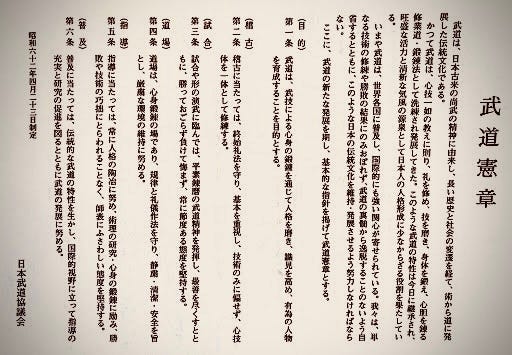 武道憲章
武道は、日本古来の尚武の精神に由来し、長い歴史と社会の変遷を経て、術から道に発
展した伝統文化である。
かつて武道は、心技一如の教えに則り、礼を修め、技を磨き、身体を鍛え、心胆を錬る
修業道・鍛錬法として洗練され発展してきた。このような武道の特性は今日に継承され、
旺盛な活力と清新な気風の源泉として日本人の人格形成に少なからざる役割を果たしてい
る。
いまや武道は、世界各国に普及し、国際的にも強い関心が寄せられている。我々は、単
なる技術の修練や勝敗の結果にのみおぼれず、武道の真髄から逸脱することのないよう自
省するとともに、このような日本の伝統文化を維持・発展させるよう努力しなければなら
ない。
ここに、武道の新たな発展を期し、基本的な指針を掲げて武道憲章とする。
(目的)
第一条 武道は、武技による心身の鍛錬を通じて人格を磨き、識見を高め、有為の人物
を育成することを目的とする。
(稽古)
第二条 稽古に当たっては、終始礼法を守り、基本を重視し、技術のみに偏せず、心技
体を一体として修練する。
(試合)
第三条 試合や形の演武に臨んでは、平素錬磨の武道精神を発揮し、最善を尽くすとと
もに、勝っておごらず負けて悔まず、常に節度ある態度を堅持する。
(道場)
第四条 道場は、心身鍛錬の場であり、規律と礼儀作法を守り、静粛・清潔・安全を旨
とし、厳粛な環境の維持に努める。
(指導)
第五条 指導に当たっては、常に人格の陶冶に努め、術理の研究・心身の鍛錬に励み、勝
敗や技術の巧拙にとらわれることなく、師表にふさわしい態度を堅持する。
(普及)
第六条 普及に当たっては、伝統的な武道の特性を生かし、国際的視野に立って指導の
充実と研究の促進を図るとともに武道の発展に努める。
昭和六十二年四月二十三日制定
日本武道協議会